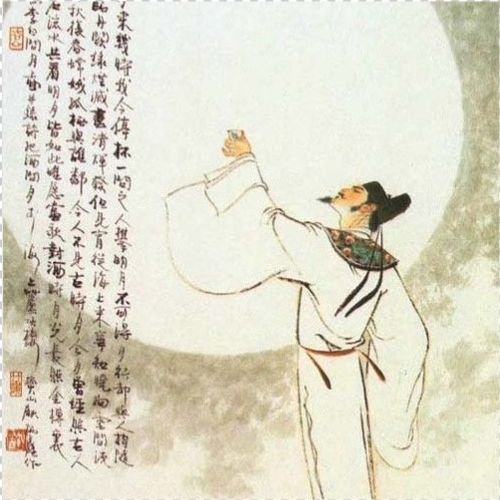 來幾時我今停杯一問之人攀明月不可得月行卻與人相隨
丹闕綠煙滅盡清輝發但見宵從海上來寧知曉向雲間沒
秋復春嫦娥孤棲與誰鄰今人不見古時月今月曾經照古人
若流水共看明月皆如此唯愿當歌對酒時月光長照金樽裏
李白問月